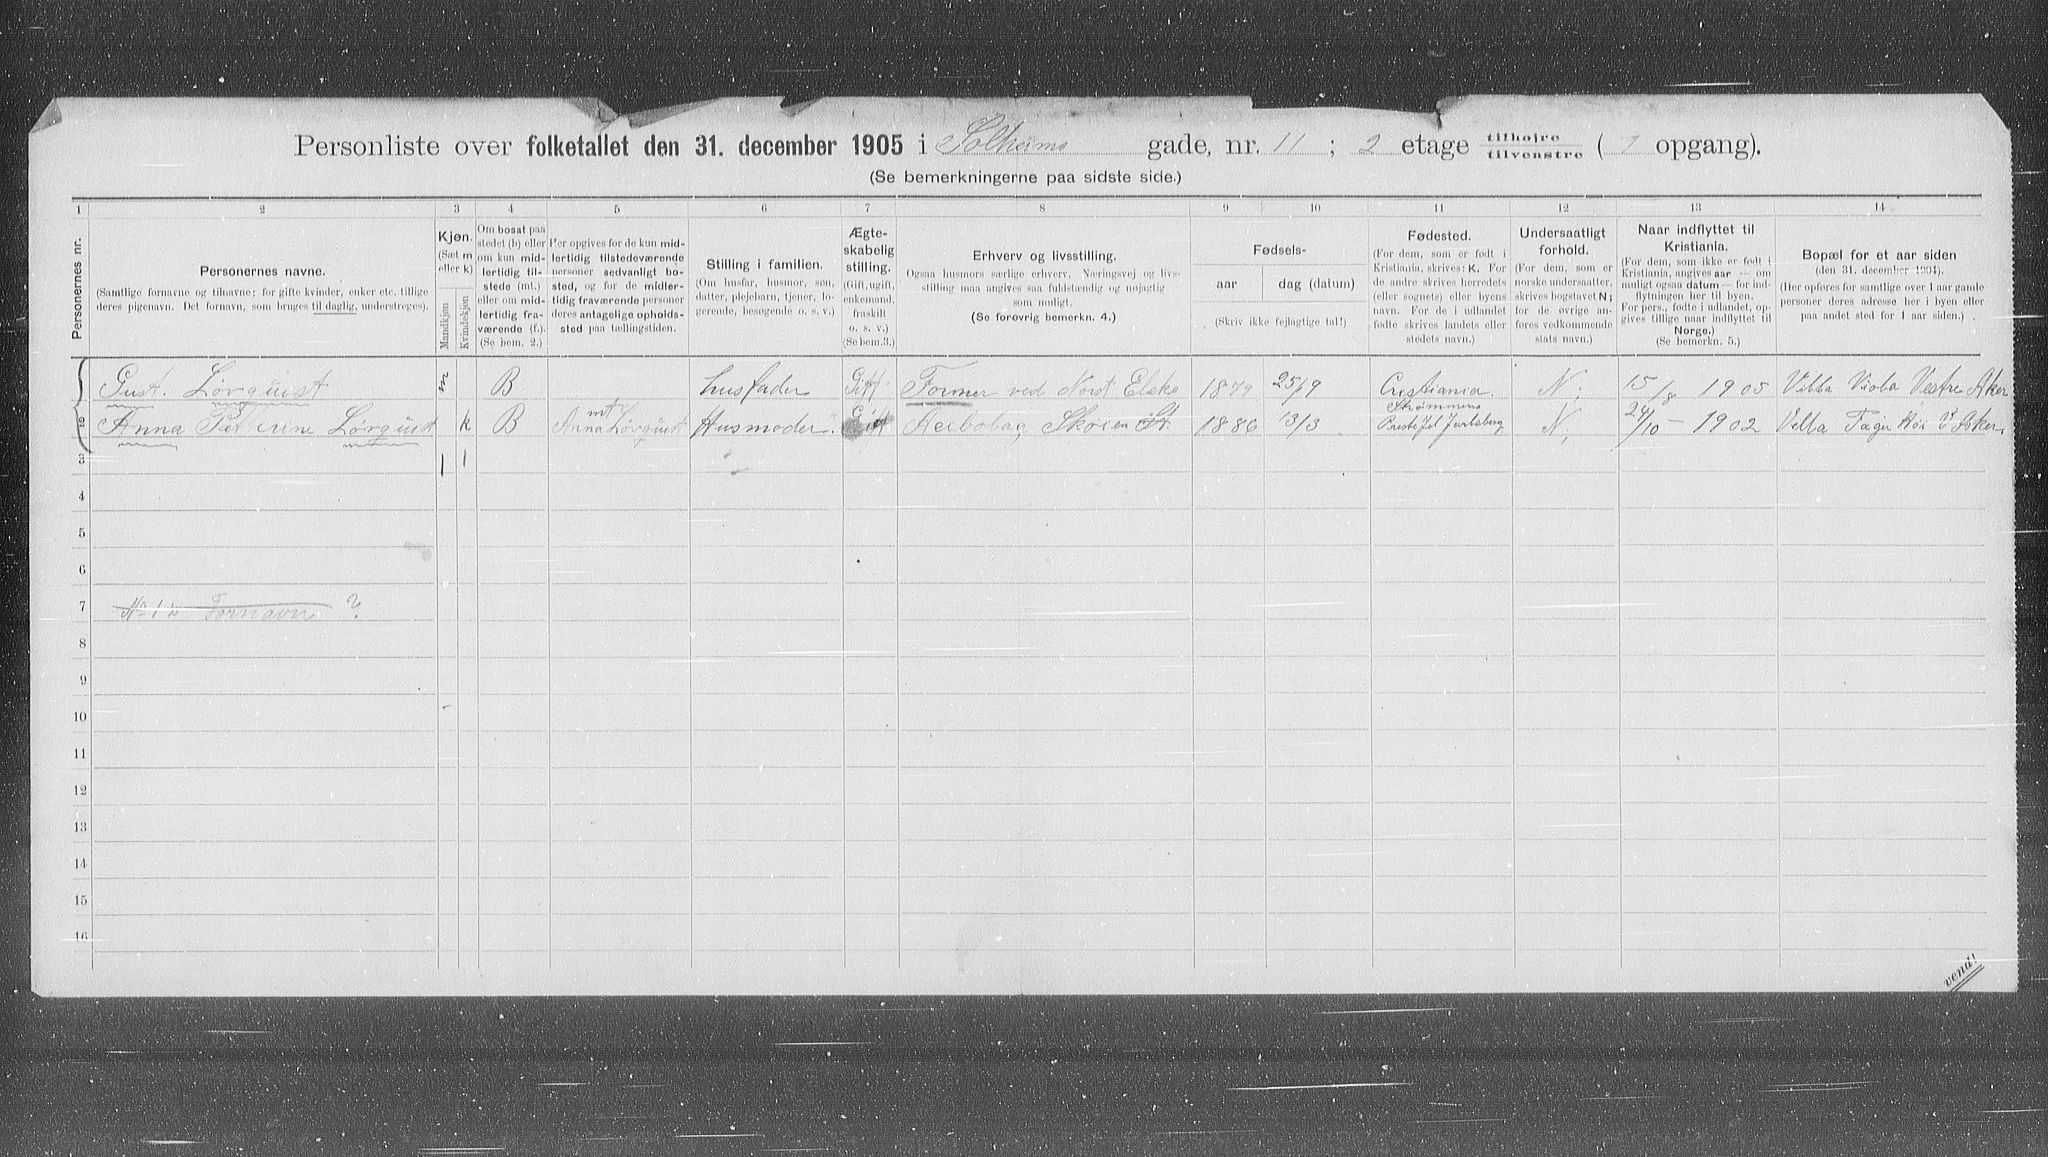 Personliste over folketallet den 31. december 1905 i Solheims gade, nr. 11 ; 2 etage tilhøjre tilvenstre ( 1 opgang).
(Se bemerkningerne paa sidste side.)
1 2 3 4 5 6 7 8 9 10 11 12 13 14
Personernes nr.
Personernes navne.
(Samtlige fornavne og tilnavne; for gifte kvinder, enker etc. tillige deres pigenavn. Det fornavn, som bruges til daglig, understreges).
Kjøn.
(Sæt m eller k)
Mandkjøn
Kvindekjøn
Om bosat paa stedet (b) eller om kun midlertidig tilstede (mt.) eller om midlertidig fraværende (f.). (Se bem. 2.)
Her opgives for de kun midlertidig tilstedeværende personer sedvanligt bosted, og for de midlertidig fraværende personer deres antagelige opholdssted paa tællingstiden.
Stilling i familien.
(Om husfar, husmor, søn, datter, plejebarn, tjener, logerende, besøgende o. s. v.)
Ægteskabelig stilling.
(Gift, ugift, enkemand, fraskilt o. s. v.) (Se bem. 3.)
Erhverv og livsstilling.
Ogsaa husmors særlige erhverv. Næringsvej og livsstilling maa angives saa fuldstændig og nøjagtig som muligt.
(Se forøvrig bemerkn. 4.)
Fødsels-
aar
dag (datum)
(Skriv ikke fejlagtige tal!)
Fødested.
(For dem, som er født i Kristiania, skrives: K. For de andre skrives herredets (eller sognets) eller byens navn. For de i udlandet fødte skrives landets eller stedets navn.)
Undersaatligt forhold.
(For dem, som er norske undersaatter, skrives bogstavet N; for de øvrige anføres vedkommende stats navn.)
Naar indflyttet til Kristiania.
(For dem, som ikke er født i Kristiania, angives aar — om muligt ogsaa datum — for indflytningen her til byen. For pers., fødte i udlandet, opgives tillige naar indflyttet til Norge.)
(Se bemerkn. 5.)
Bopæl for et aar siden
(den 31. december 1904).
(Her opføres for samtlige over 1 aar gamle personer deres adresse her i byen eller paa andet sted for 1 aar siden.)
Gust. Lørquist m B husfader Gift Former ved Nord Elek. 1879 25/9 Cristiania. N; 15/8 1905 Villa Viola Vestre Aker
2 Anna Petterine Lørquist k B mt Anna Lørquist Husmoder Gift Aeibolag Skøien St. 1886 13/3 Strømmens Jarlsberg N; 24/10 – 1902 Villa Fager V Aker.
3
4
5
6
7 No 1's Fornavn ?
8
9
10
11
12
13
14
15
16
vend!